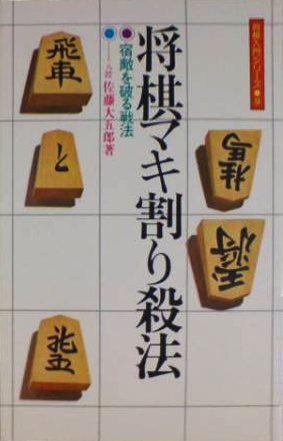 将棋入門シリーズ●9
将棋マキ割り殺法
●宿敵を破る戦法
●──八段 佐藤大五郎著
飛車
と
桂馬